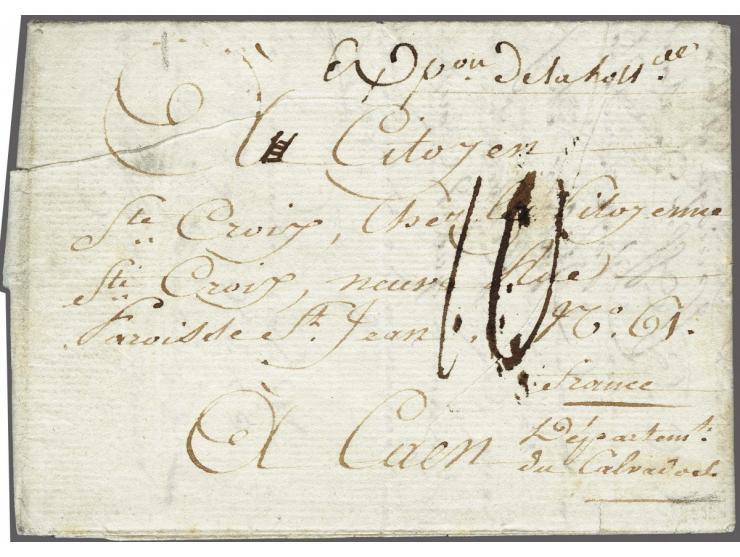 Exp.on de la holl.de
Au Citoyen
Ste Croix, Chez la Citoyenne
Ste Croix, neuve Rue
Paroisse St. Jean, No. 61.
10
France
À Caen Départemt.
du Calvados.